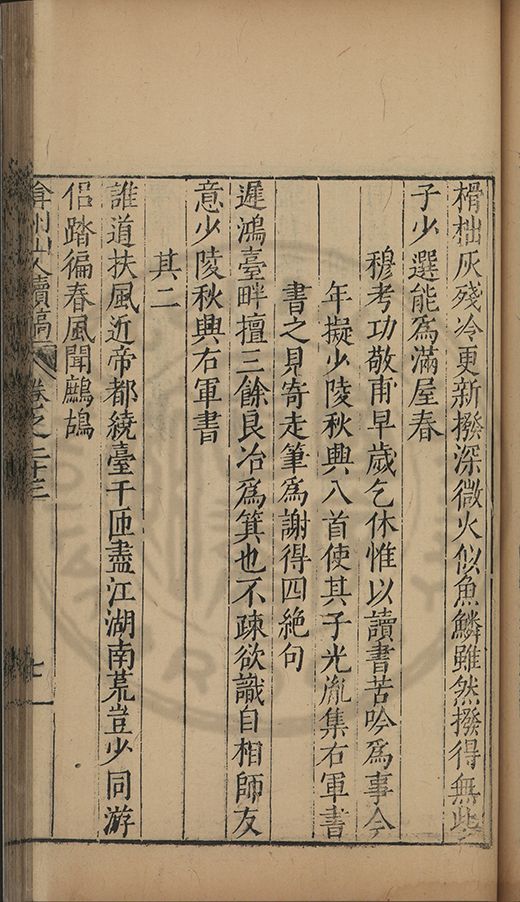 榾柮灰殘冷更新撥深微火似魚鱗雖然撥得無些
子少選能為滿屋春
穆考功敬甫早歲乞休惟以讀書苦吟為事今
年擬少陵秋興八首使其子光胤集右軍書
書之見寄走筆為謝得四絕句
遲鴻臺畔擅三餘良冶為箕也不疎欲識自相師友
意少陵秋興右軍書
其二
誰道扶風近帝都繞臺千匝盡江湖南荒豈少同游
侶踏徧春風聞鷓鴣
弇州山人續稿 卷之二十三
七